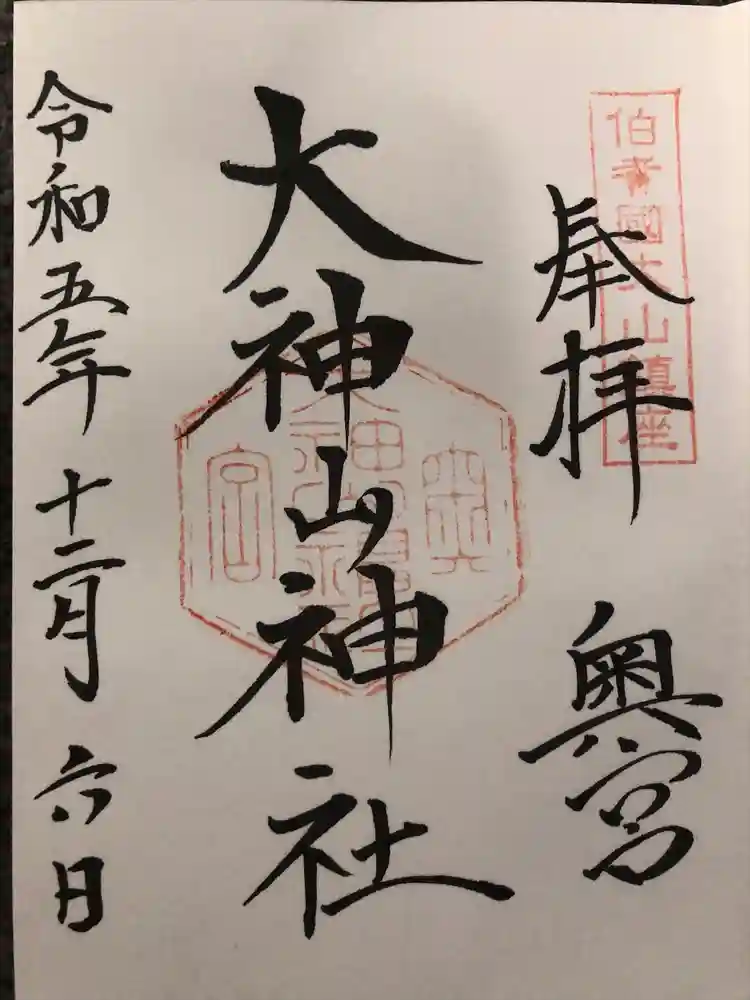 伯耆國大山鎮座
奉拝
奥宮
大神山神社
令和五年十二月六日
奥
宮